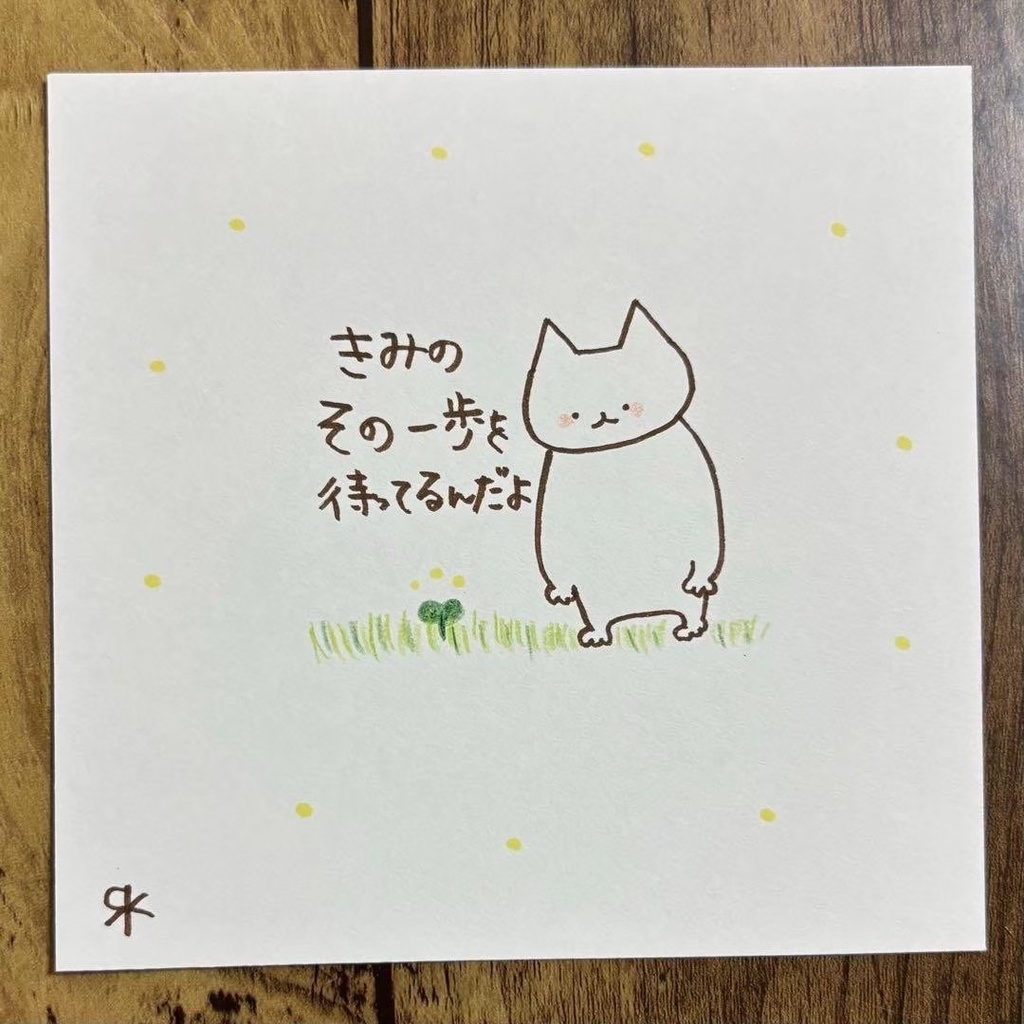 きみの
その一歩を
待ってるんだよ